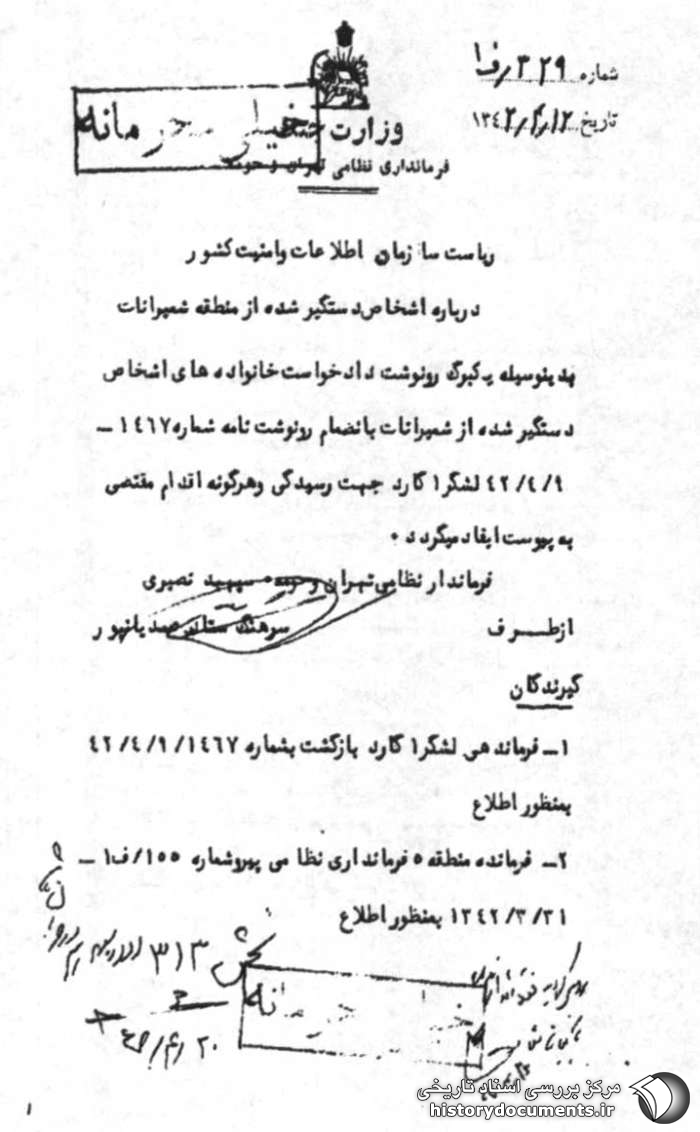 شماره ۳۲۹/ف۱
تاریخ ۱۳۴۲/۴/۱۲
خیلی محرمانه
وزارت جنگ
فرمانداری نظامی تهران و حومه
ریاست سازمان اطلاعات وامنیت کشور
درباره اشخاص دستگیر شده از منطقه شمیرانات
بدینوسیله یکبرگ رونوشت دادخواست خانواده های اشخاص
دستگیر شده از شمیرانات بانضمام رونوشت نامه شماره ۱۴۶۷ –
۴۲/۴/۹ لشگر ۱ گارد جهت رسیدگی وهرگونه اقدام مقتضی
به پیوست ایفاد میگردد ۰
فرماندار نظامی تهران وحومه سپهبد نصیری
ازطرف سرهنگ ستاد صدیانپور
گیرندگان
۱– فرماندهی لشگر ۱ گارد بازگشت بشماره ۴۲/۴/۹/۱۴۶۷
بمنظور اطلاع
۲– فرمانده منطقه ۵ فرمانداری نظامی پیروشماره ۱۵۵/ف۱ –
۱۳۴۲/۳/۳۱ بمنظور اطلاع
بخش ۳۱۳
خیلی محرمانه
۱
مرکز بررسی اسناد تاریخی
historydocuments.ir